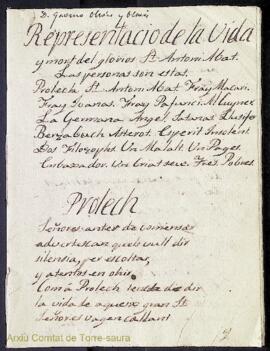 Representacio de la Vida
y mort del glorios St. Antoni Abat.
Las personas son estas.
Prolech St. Antoni Abat. Fray Macari.
Fray Joanas. Fray Pafunci. Alcuynex
La Germana Angel. Satanas Lusifer
Berzabuch Asterot. Esperit Insolent
Dos Filosophs Un Malalt. Un Pages.
Embaxador. Un Criat seu. Tres Pobres.
Prolech
Señores antes de comensar
advertescan que lo vull dir
silensia, per escoltar,
y atentos en ohir.
Com à Prolech tench de dir
la vida de aquex gran St
Señores vagen callant
Arxiu Comtat de Torre-saura